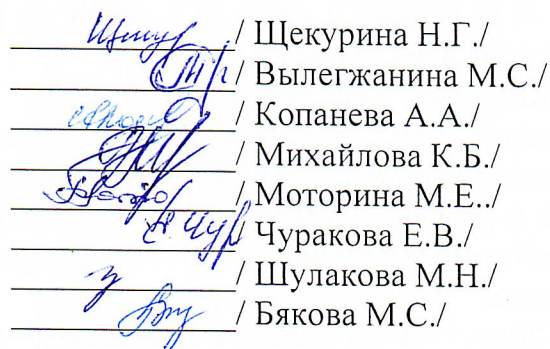 / Щекурина Н.Г./
/ Вылегжанина М.С./
/ Копанева А.А./
/ Михайлова К.Б./
/ Моторина М.Е../
/ Чуракова Е.В./
/ Шулакова М.Н./
/ Бякова М.С./